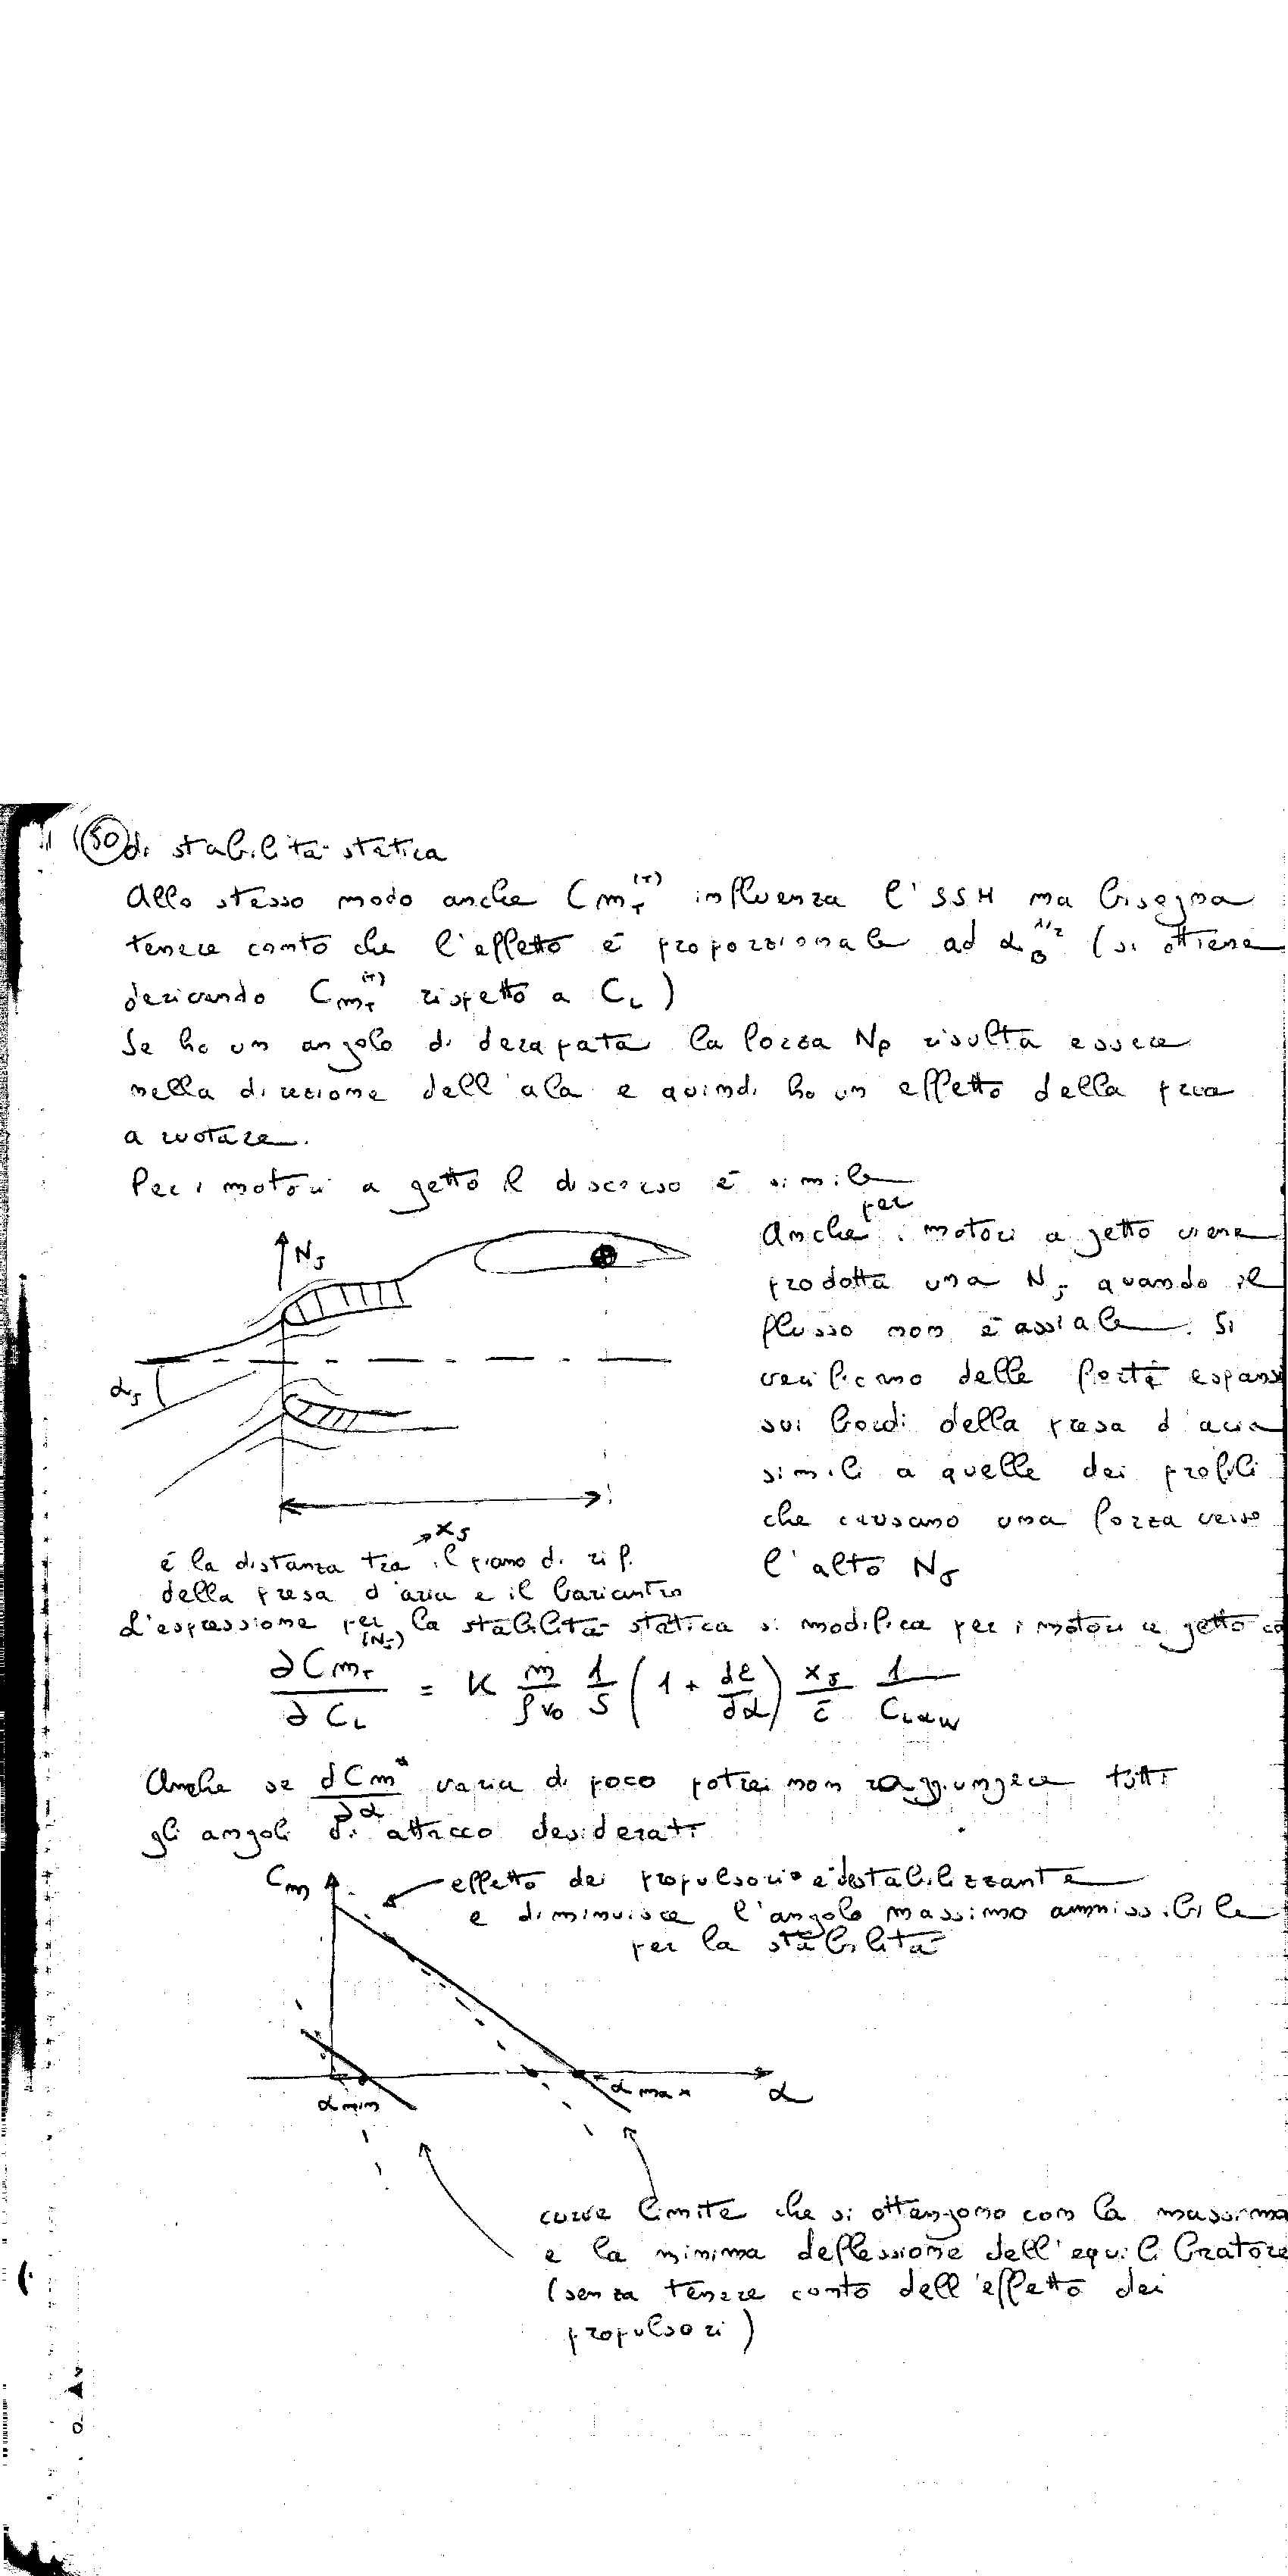 50 di stabilità statica
Allo stesso modo anche Cm_T^(T) influenza l'SSH ma bisogna
tenere conto che l'effetto è proporzionale ad α_B^1/2 (si ottiene
derivando Cm_T^(T) rispetto a C_L)
Se ho un angolo di derapata la forza Np risulta essere
nella direzione dell'ala e quindi ho un effetto della prua
a ruotare.
Per i motori a getto il discorso è simile
Anche per i motori a getto viene
prodotta una N_J quando il
flusso non è assiale. Si
verificano delle forti espans
sui bordi della presa d'aria
simili a quelle dei profili
che causano una forza verso
l'alto N_J
N_J
α_J
x_J
è la distanza tra il piano di rif.
della presa d'aria e il baricentro
L'espressione per la stabilità statica si modifica per i motori a getto co
∂Cm_T^(N_J) / ∂C_L = K m/(ρv_0) 1/S (1 + dε/dα) x_J/c̄ 1/C_LαW
Anche se dCm*/∂α varia di poco potrei non raggiungere tutti
gli angoli di attacco desiderati
Cm
effetto dei propulsori è destabilizzante
e diminuisce l'angolo massimo ammissibile
per la stabilità
α min
α max
α
curve limite che si ottengono con la massima
e la minima deflessione dell'equilibratore
(senza tenere conto dell'effetto dei
propulsori)